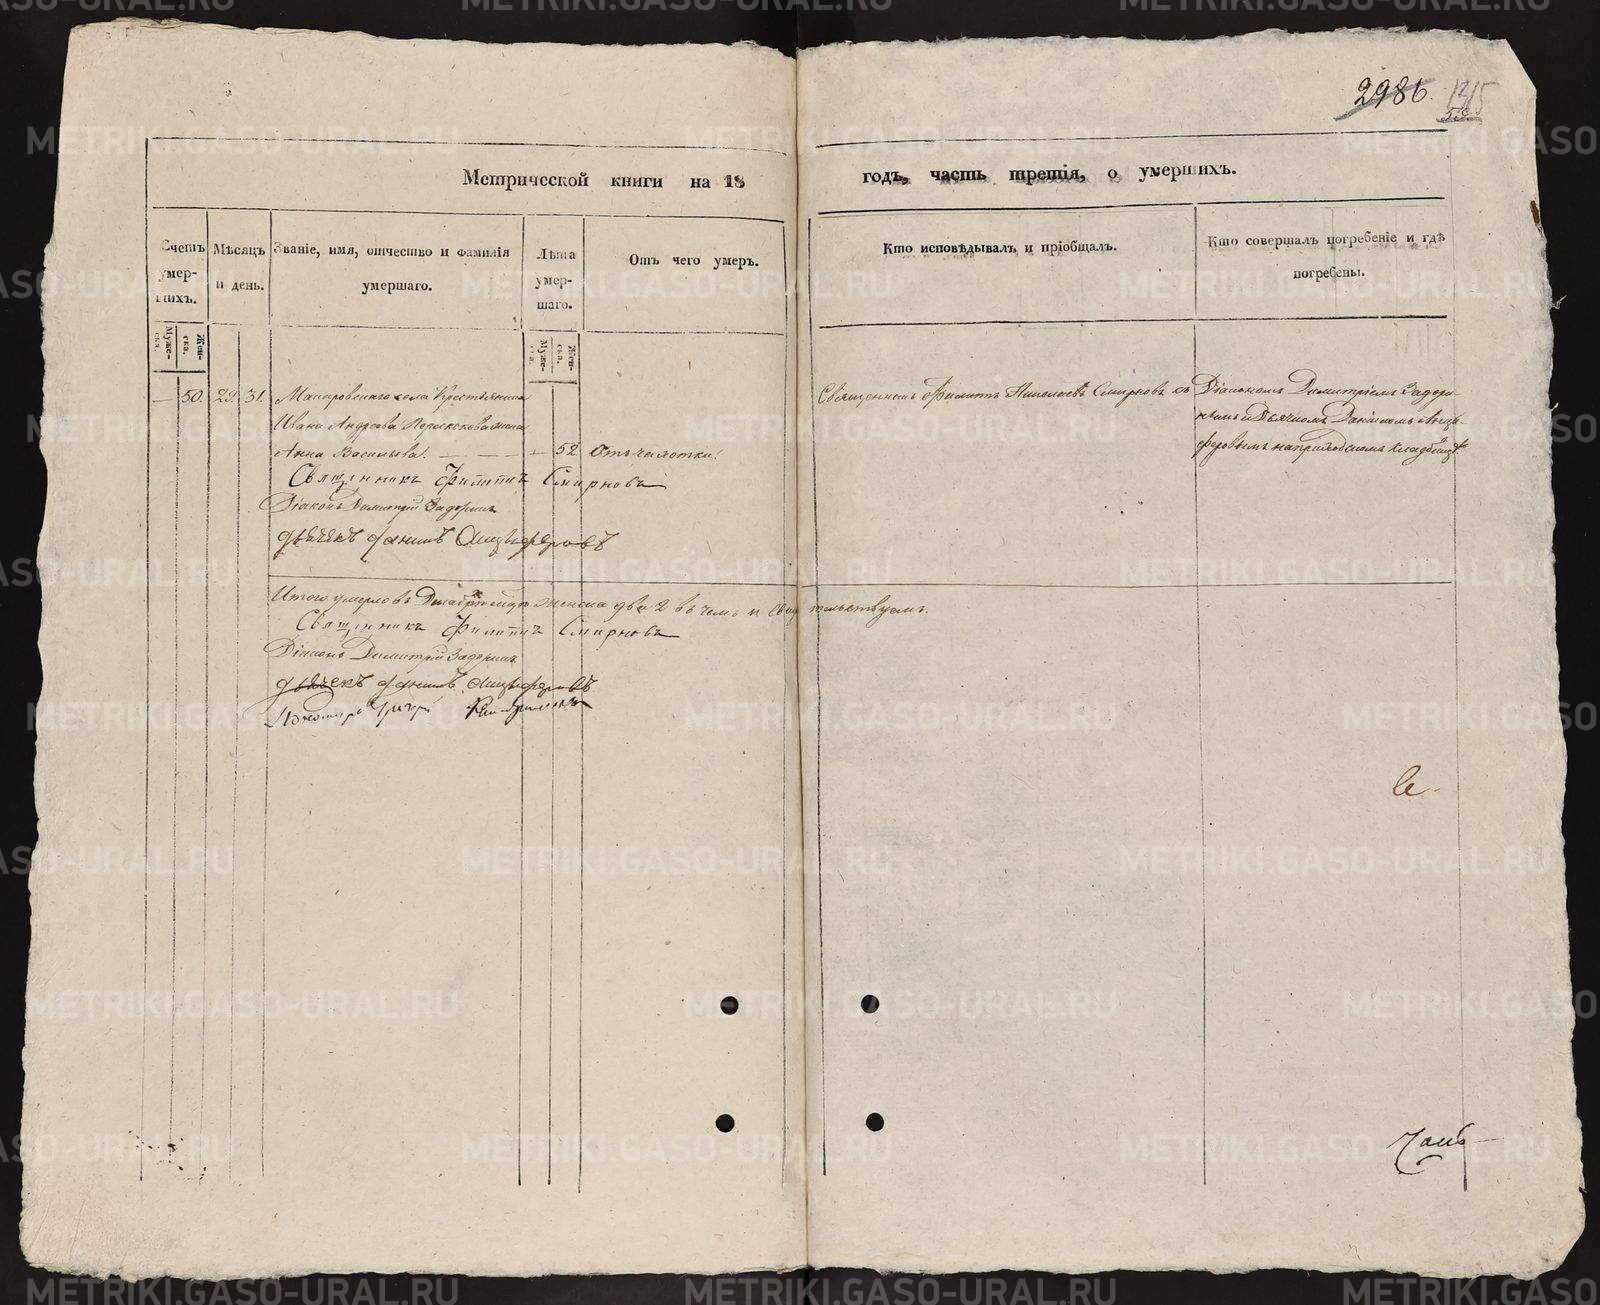 2986. 1315
Метрической книги на 18 годъ, часть третія, о умершихъ.
Счетъ умерших.
Мѣсяцъ и день.
Званіе, имя, отчество и фамилія умершаго.
Лѣта умершаго.
Отъ чего умеръ.
Кто исповѣдывалъ и пріобщалъ.
Кто совершалъ погребеніе и гдѣ погребены.
Муже-ска.
Жен-ска.
Муже-ска.
Жен-ска.
— 50. 29. 31. села Крестьянина
Ивана Андреева жена
Анна Васильева. — — — — 52 Отъ чахотки.
Священникъ Филиппъ Николаевъ Смирновъ съ
Діакономъ Димитріемъ Задори-
нымъ и Дьячкомъ Даніиломъ Анцы-
феровымъ на приходскомъ кладбищѣ
Священникъ Филиппъ Смирновъ
Діаконъ Димитрій Задоринъ
дьячекъ Данилъ Анцыферовъ
Итого умерло въ Декабрѣ женска два 2 въ чемъ и свидѣтельствуемъ.
Священникъ Филиппъ Смирновъ
Діаконъ Димитрій Задоринъ
дьячекъ Данилъ Анцыферовъ
Пономарь
METRIKI.GASO-URAL.RU